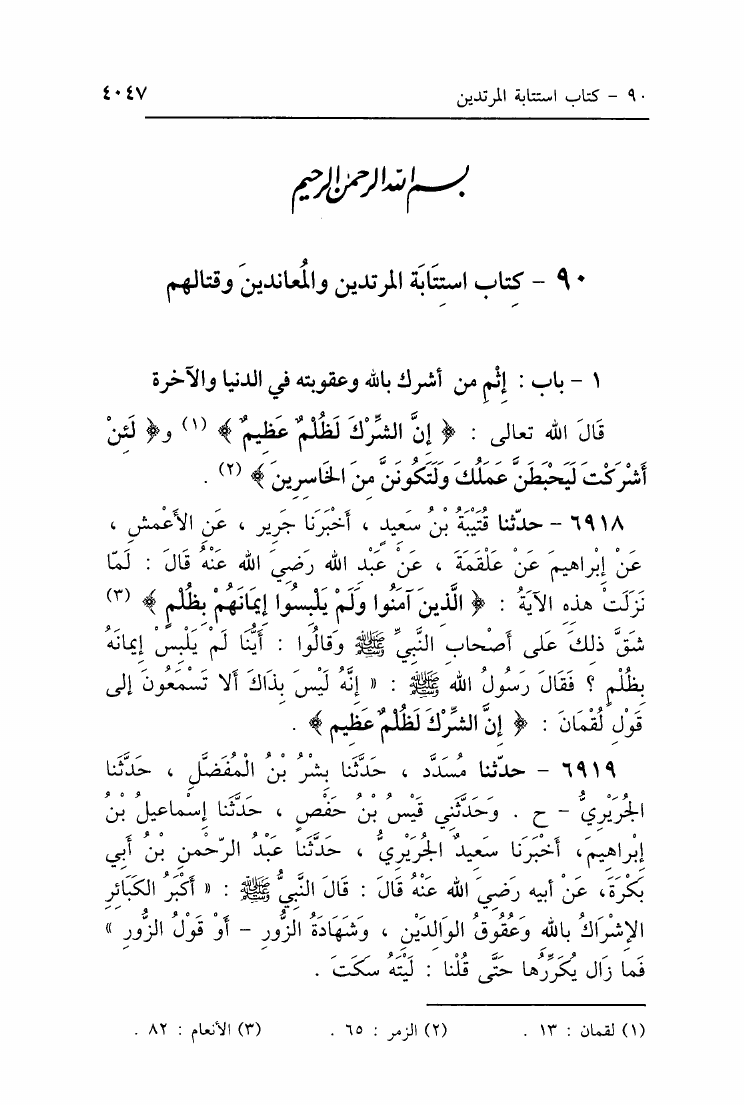 ٩٠ - كتاب استتابة المرتدين ٤٠٤٧
بسم الله الرحمن الرحيم
٩٠ - كِتاب استِتَابَة المرتدين والمُعاندينَ وقتالهم
١ - باب : إِثْمِ من أشرك بالله وعقوبته في الدنيا والآخرة
قَالَ الله تعالى : ﴿ إِنَّ الشِّرْكَ لَظُلْمٌ عَظِيمٌ ﴾ (١) و﴿ لَئِنْ
أَشْرَكْتَ لَيَحْبَطَنَّ عَمَلُكَ وَلَتَكُونَنَّ مِنَ الخَاسِرِينَ ﴾ (٢) .
٦٩١٨ - حدّثنا قُتَيْبَةُ بْنُ سَعِيدٍ ، أَخْبَرَنا جَرِير ، عَنِ الأَعْمشِ ،
عَنْ إِبْراهِيمَ عَنْ عَلْقَمَةَ ، عَنْ عَبْدِ الله رَضِيَ الله عَنْهُ قَالَ : لَمّا
نَزَلَتْ هذِهِ الآيَةُ : ﴿ الَّذِينَ آمَنُوا وَلَمْ يَلْبِسُوا إِيمَانَهُمْ بِظُلْمٍ ﴾ (٣)
شَقَّ ذلِكَ عَلَى أَصْحابِ النَّبِيِّ ﷺ وَقالُوا : أَيُّنَا لَمْ يَلْبِسْ إِيمَانَهُ
بِظُلْمٍ ؟ فَقَالَ رَسُولُ الله ﷺ : « إِنَّهُ لَيْسَ بِذَاكَ أَلا تَسْمَعُونَ إِلى
قَوْلِ لُقْمَانَ : ﴿ إِنَّ الشِّرْكَ لَظُلْمٌ عَظِيم ﴾ .
٦٩١٩ - حدّثنا مُسَدَّد ، حَدَّثَنا بِشْرُ بْنُ الْمُفَضَّلِ ، حَدَّثَنا
الجُرَيْرِيُّ - ح . وَحَدَّثَنِي قَيْسُ بْنُ حَفْصٍ ، حَدَّثَنا إِسْماعيلُ بْنُ
إِبْراهيمَ، أَخْبَرَنا سَعِيدٌ الجُرَيْرِيُّ ، حَدَّثَنا عَبْدُ الرّحْمنِ بْنُ أَبي
بَكْرَةَ، عَنْ أَبيه رَضِيَ الله عَنْهُ قَالَ : قَالَ النَّبِيُّ ﷺ : « أَكْبَرُ الكَبَائِرِ
الإشْرَاكُ بالله وَعُقُوقُ الوَالدَيْنِ ، وَشَهَادَةُ الزُّورِ - أَوْ قَوْلُ الزُّورِ »
فَما زَال يُكَرِّرُها حَتَّى قُلْنا : لَيْتَهُ سَكَتَ .
(١) لقمان : ١٣ . (٢) الزمر : ٦٥ . (٣) الأنعام : ٨٢ .